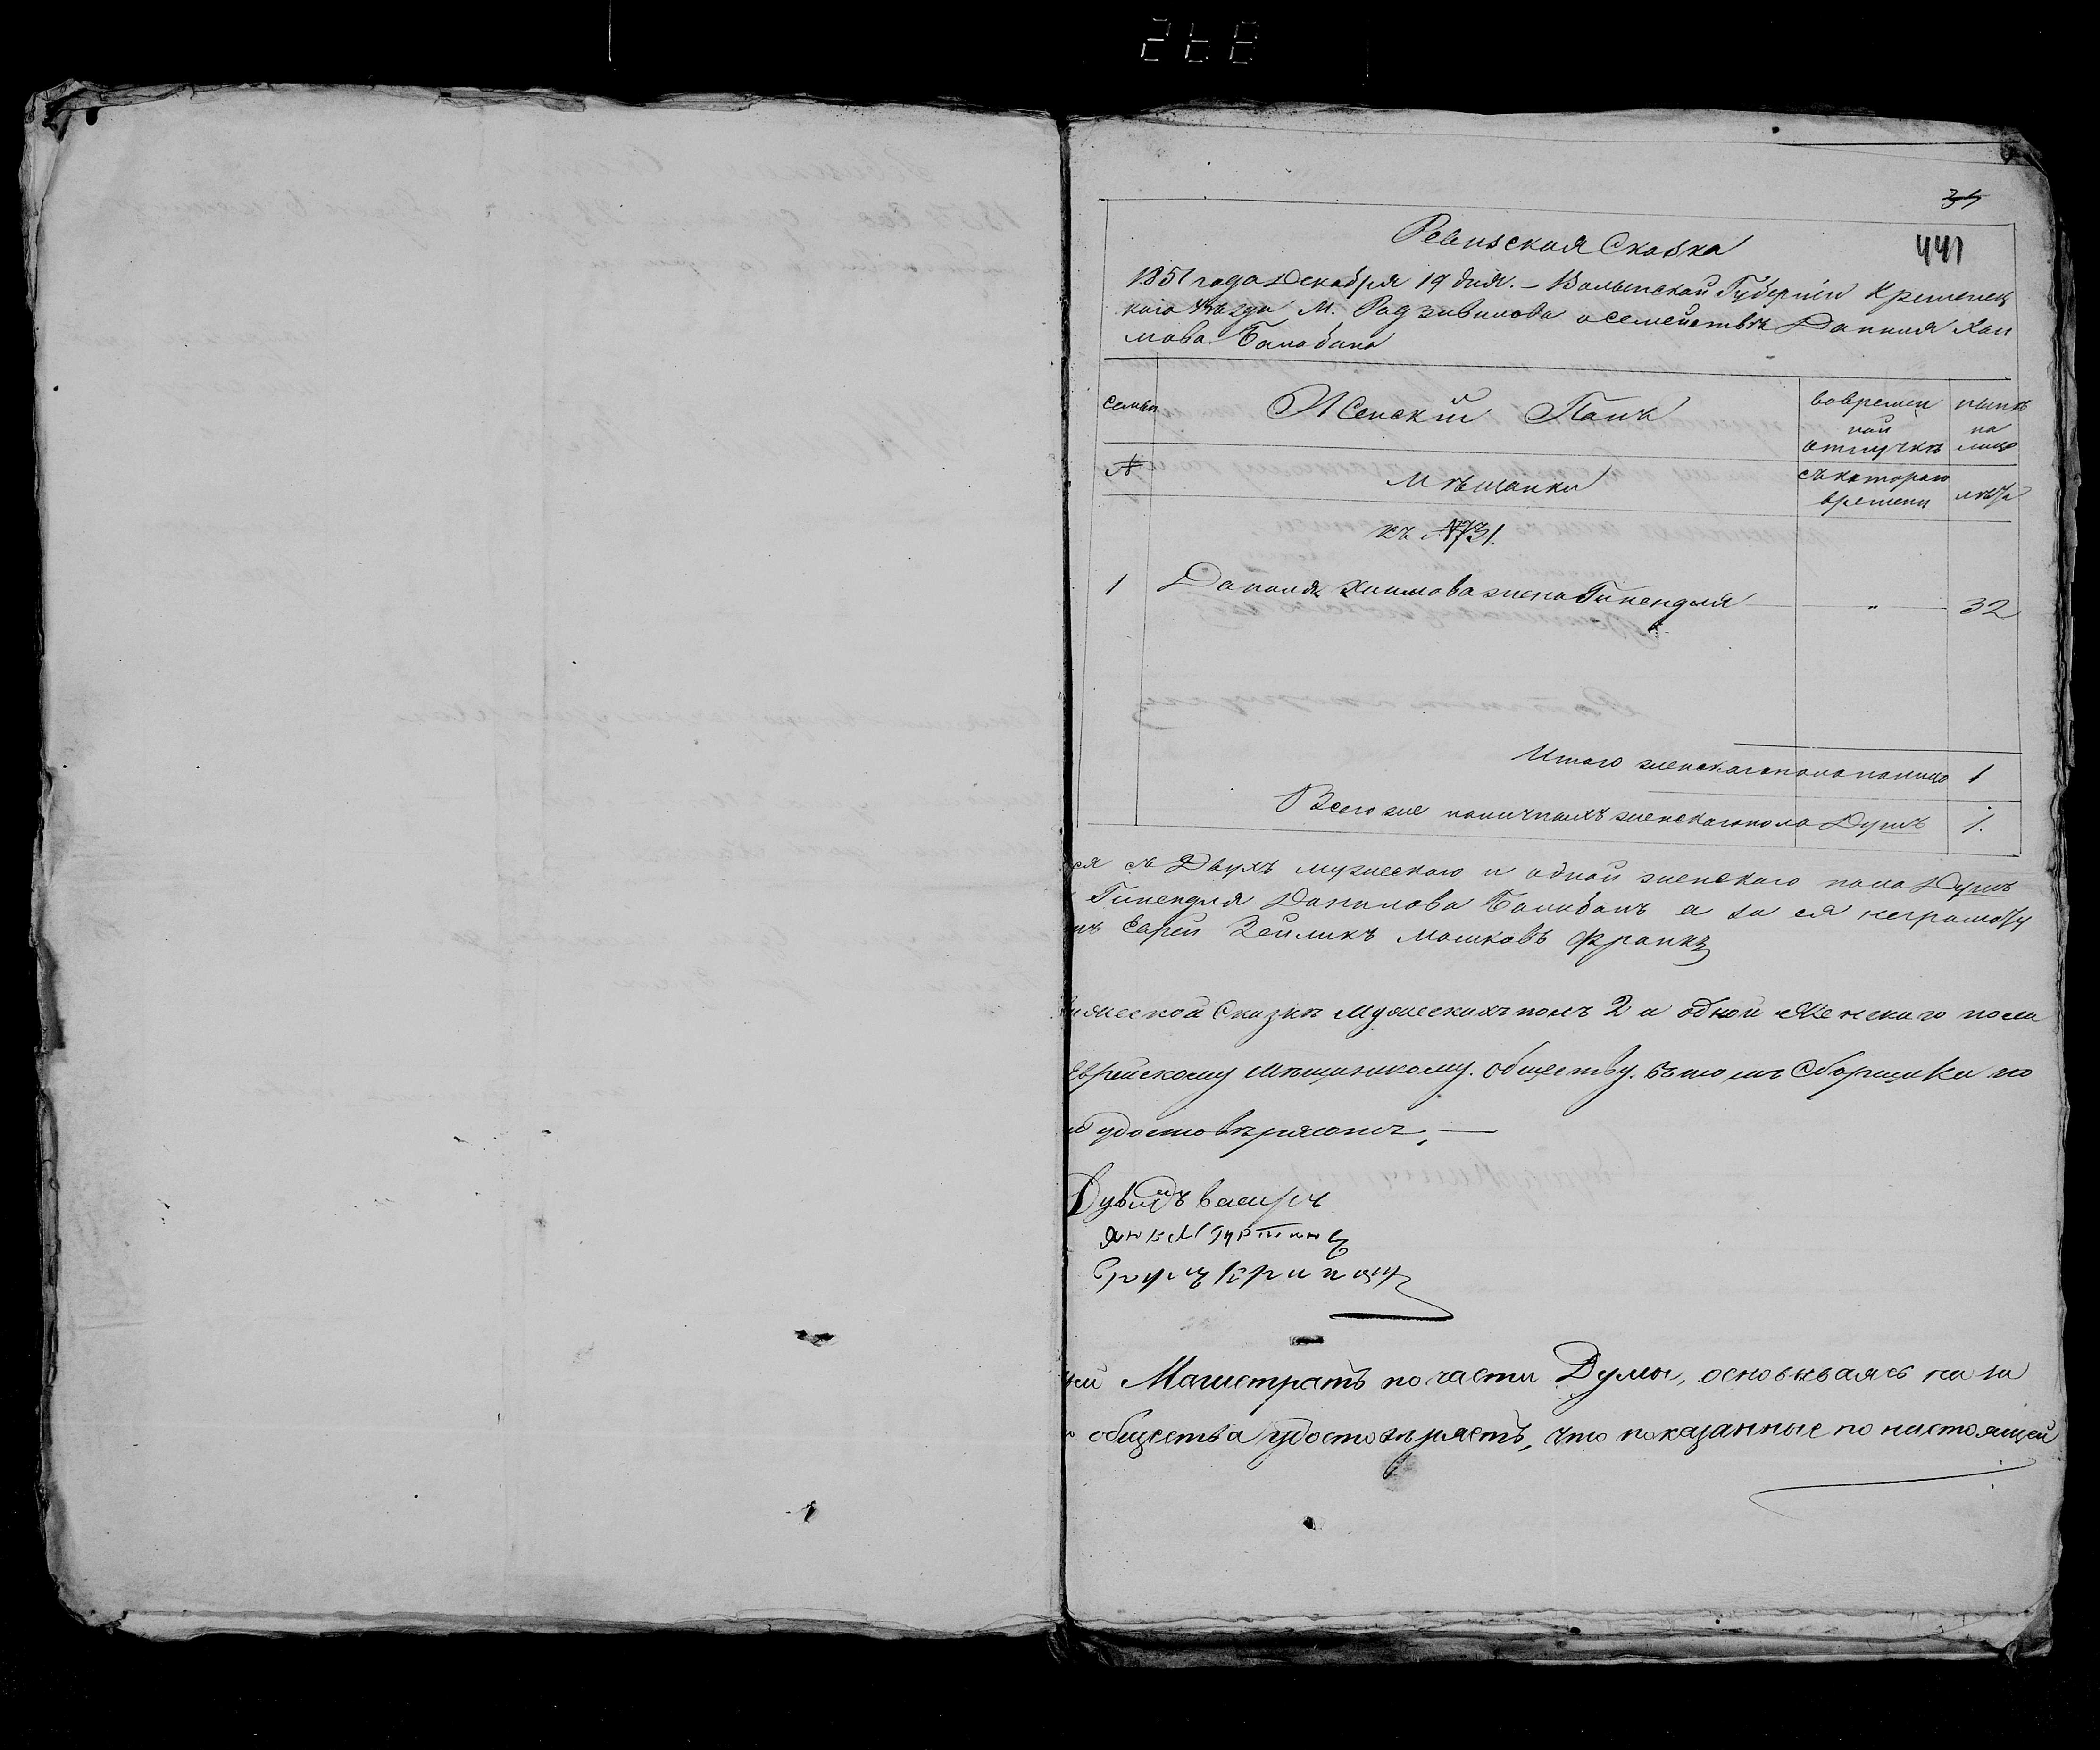 35
441
Ревизская Сказка
1851 года Декабря 19 дня. – Волынской Губернiи Кременец
каго уѣзда М. Радзивилова о семействѣ Данiиля Хаи
мова Балабана
семьи
Женскiй Полъ
вовремен
ной
отлучкѣ
нынѣ
на
лицо
№
Мѣщанки
съ котораго
времени
лѣта
къ №731.
1 Данiиля Хаимова жена Гинендля " 32
Итого женскагопола налицо 1
Всего же наличныхъ женскагопола Душъ 1.
ся съ Двухъ мужескаго и одной женскаго пола Душъ
Гинендля Данилова Балабанъ а за ея неграмоту
Еврей Зейликъ Мошковъ Франкъ
Сказкѣ Мужескихъ полъ 2 и одной Женскаго пола
Еврейскому Мѣщанскому. обществу. въ томъ Сборщики по
удостовѣряютъ. —
Магистратъ по части Думы, основываясь на за
общества удостовѣряетъ, что показанные по настоящей